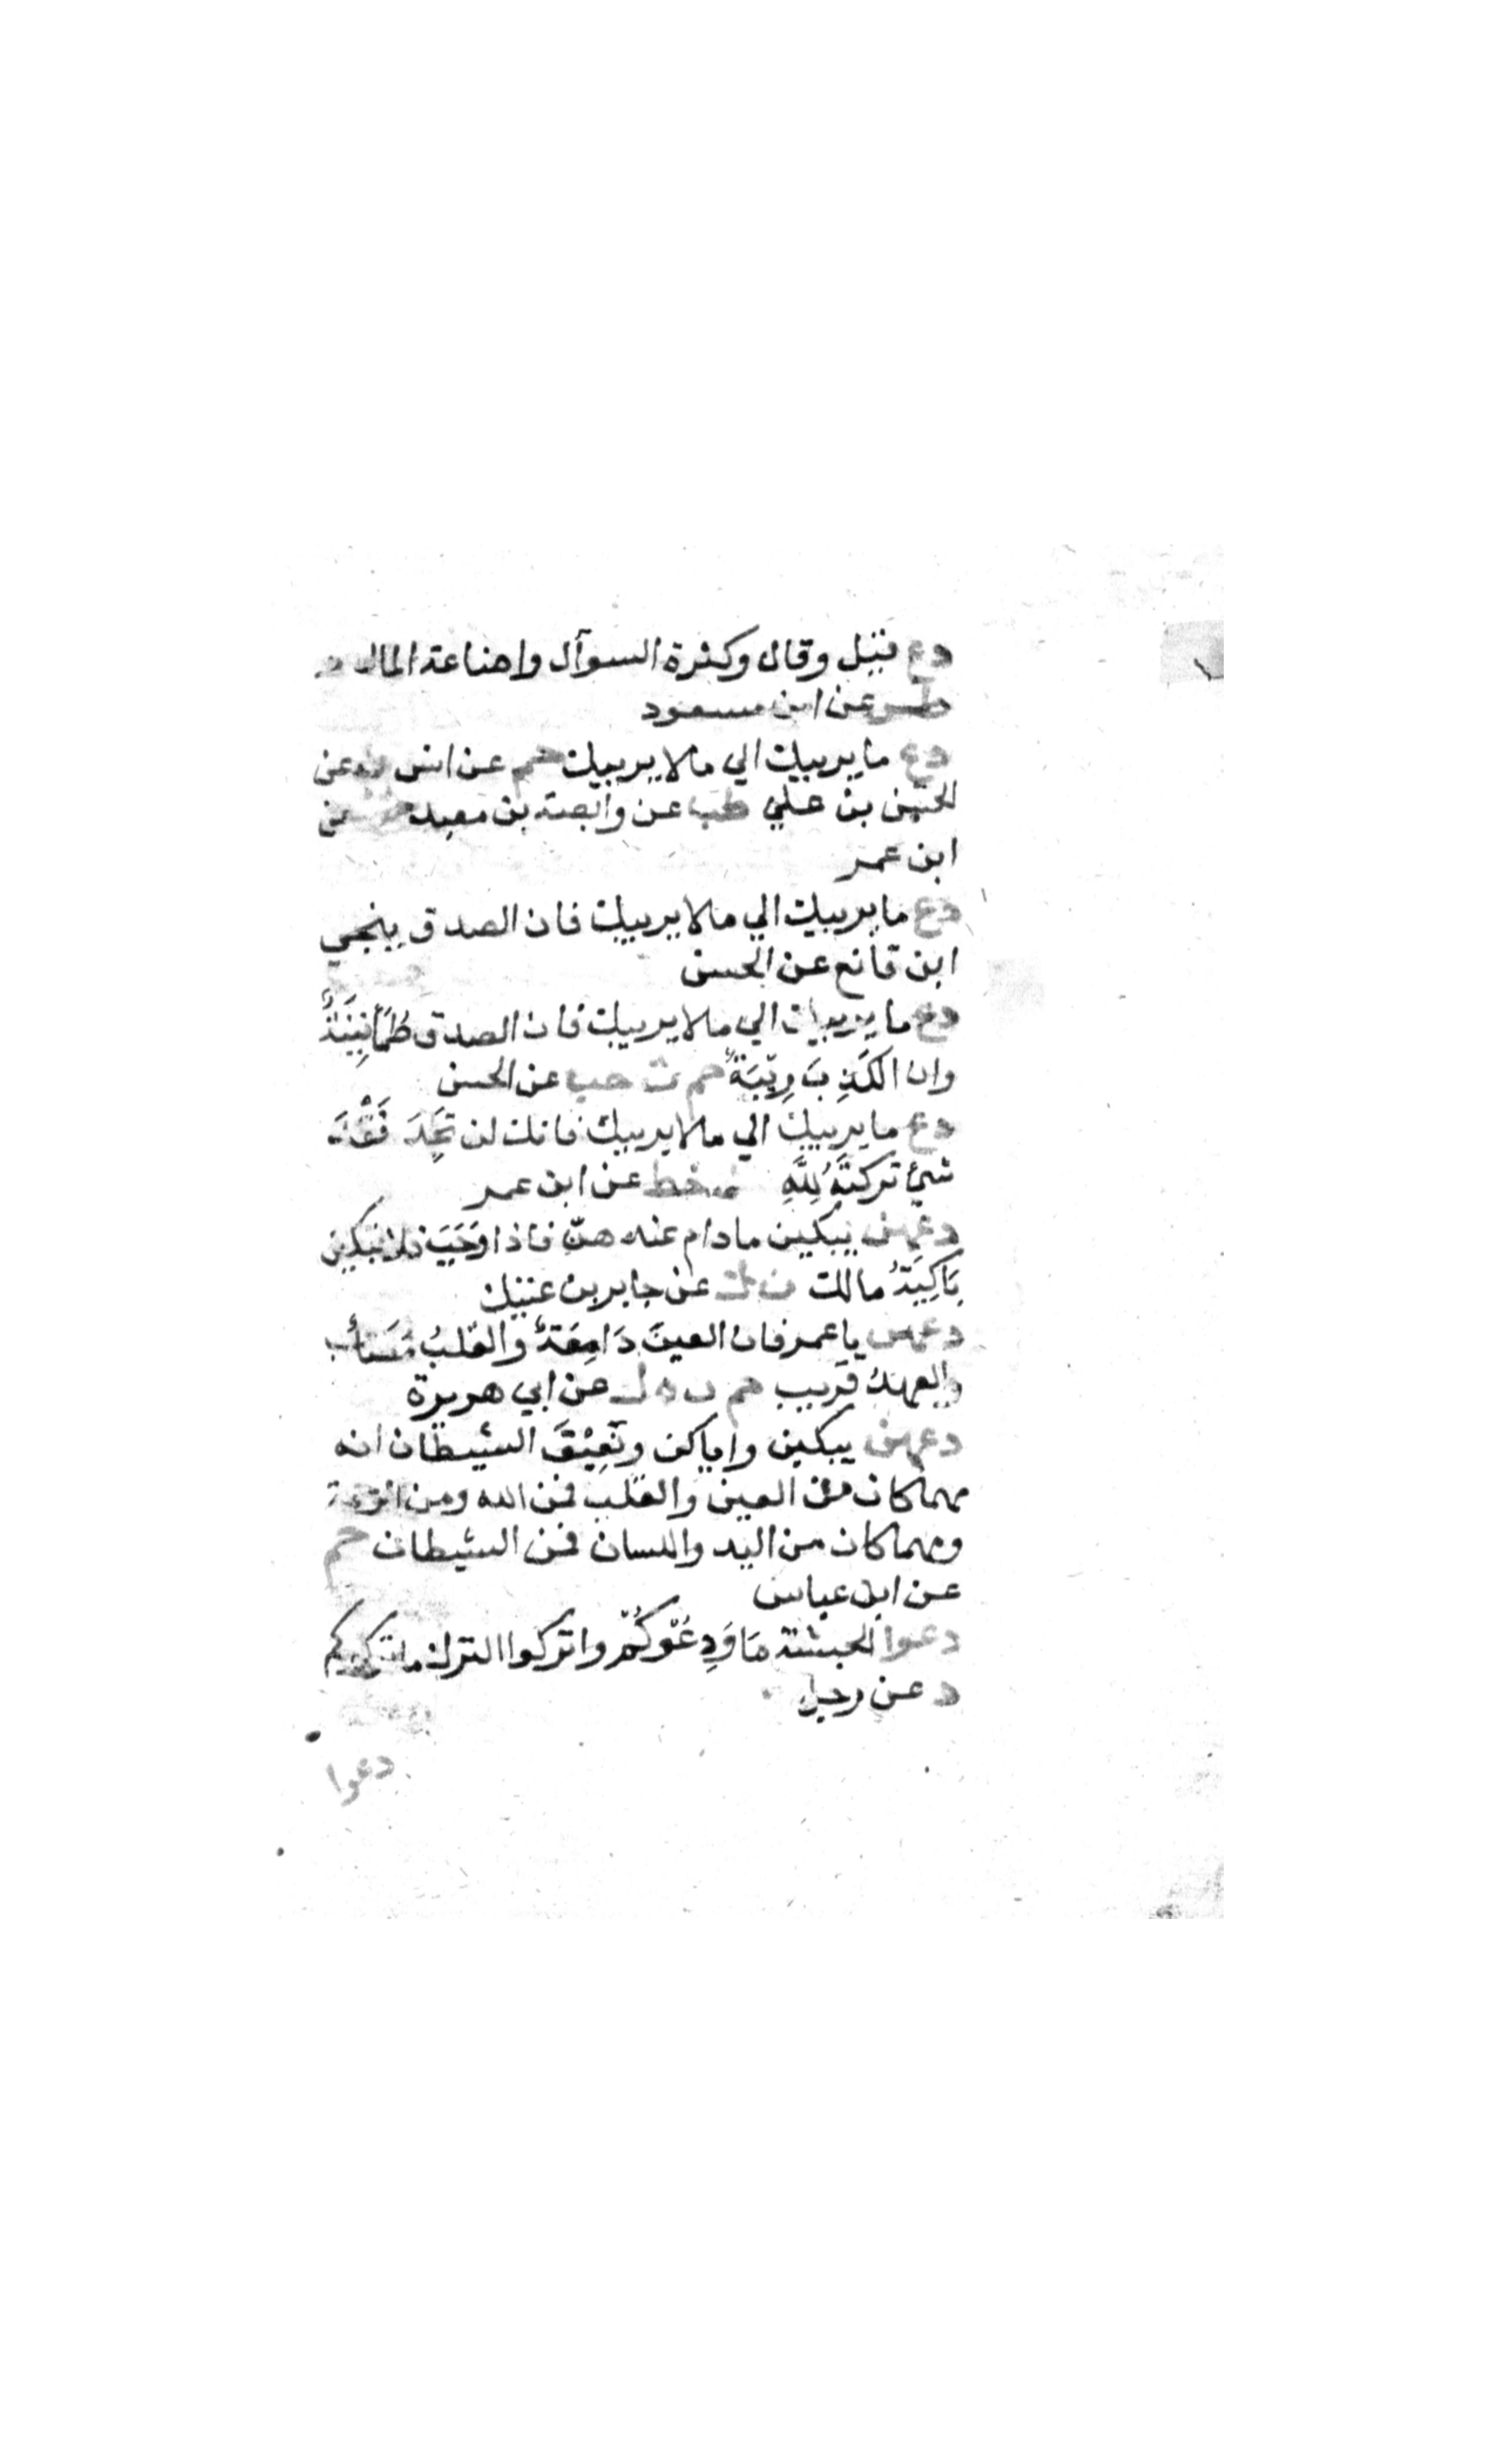 دع قيل وقال وكثرة السوآل واضاعة المال
طس عن ابن مسعود
دع ما يريبك الي ما لا يريبك حم عن انس عن
الحسن بن علي طب عن وابصة بن معبد عن
ابن عمر
دع ما يريبك الي مالا يريبك فان الصدق ينجي
ابن قانع عن الحسن
دع ما يريبك الي مالا يريبك فان الصدق طُمَأنِينَةٌ
وان الكَذِبَ رِيْبَةٌ حم ت حب عن الحسن
دع ما يريبك الي مالا يريبك فانك لن تَجِدَ فَقْدَ
شيءٍ تركتَهُ لِلَّهِ خط عن ابن عمر
دعهن يبكين مادام عندهنّ فاذا وَجَبَ فلا تبكين
بَاكِيَةُ مالك ن ك عن جابر بن عتيك
دعهن ياعمر فان العينَ دَامِعَةٌ والقلبُ مُصَابٌ
والعهدُ قريب حم ن ه ك عن ابي هريرة
دعهن يبكين واياكن ونَعِيْقَ الشيطان انه
مهما كان من العين والقلب فمن الله ومن الرحمة
ومهما كان من اليد واللسان فمن الشيطان حم
عن ابن عباس
دعوا الحبشة مَا وَدِعُوكُمْ واتركوا الترك ما تركوكم
د عن رجل
دعوا